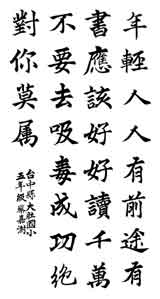 年輕人人有前途有
書應該好好讀千萬
不要去吸毒成功絕
對你莫属
台中縣大社國小
五年級